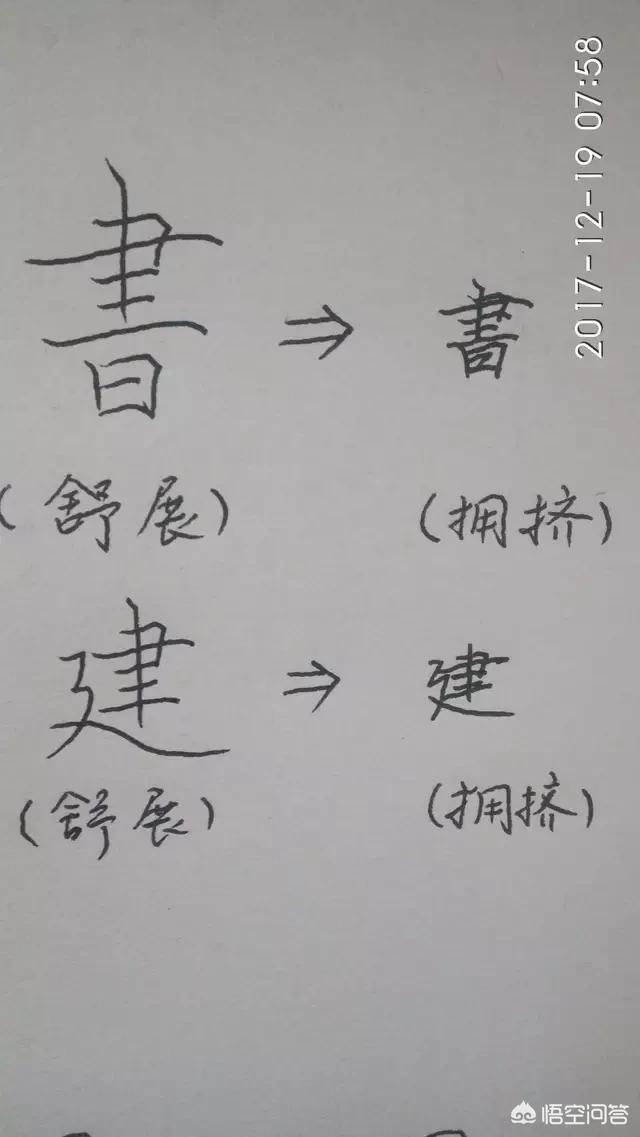 2017-12-19 07:58
書 ⇒ 書
(舒展) (拥挤)
建 ⇒ 建
(舒展) (拥挤)
悟空问答